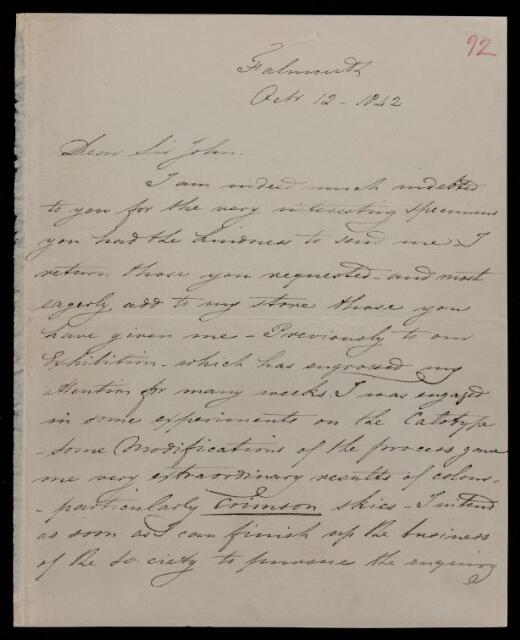 92
Falmouth
Octr 12 - 1842
Dear Sir John.
I am indeed much indebted
to you for the very interesting specimens
you had the kindness to send me. I
return those you requested - and most
eagerly add to my store those you
have given me - Previously to our
Exhibition - which has engrossed my
attention for many weeks. I was engaged
in some experiments on the Calotype
- Some Modifications of the process gave
me very extraordinary results of colour.
- particularly Crimson skies - I intend
as soon as I can finish up the business
of the Society to pursue the enquiry